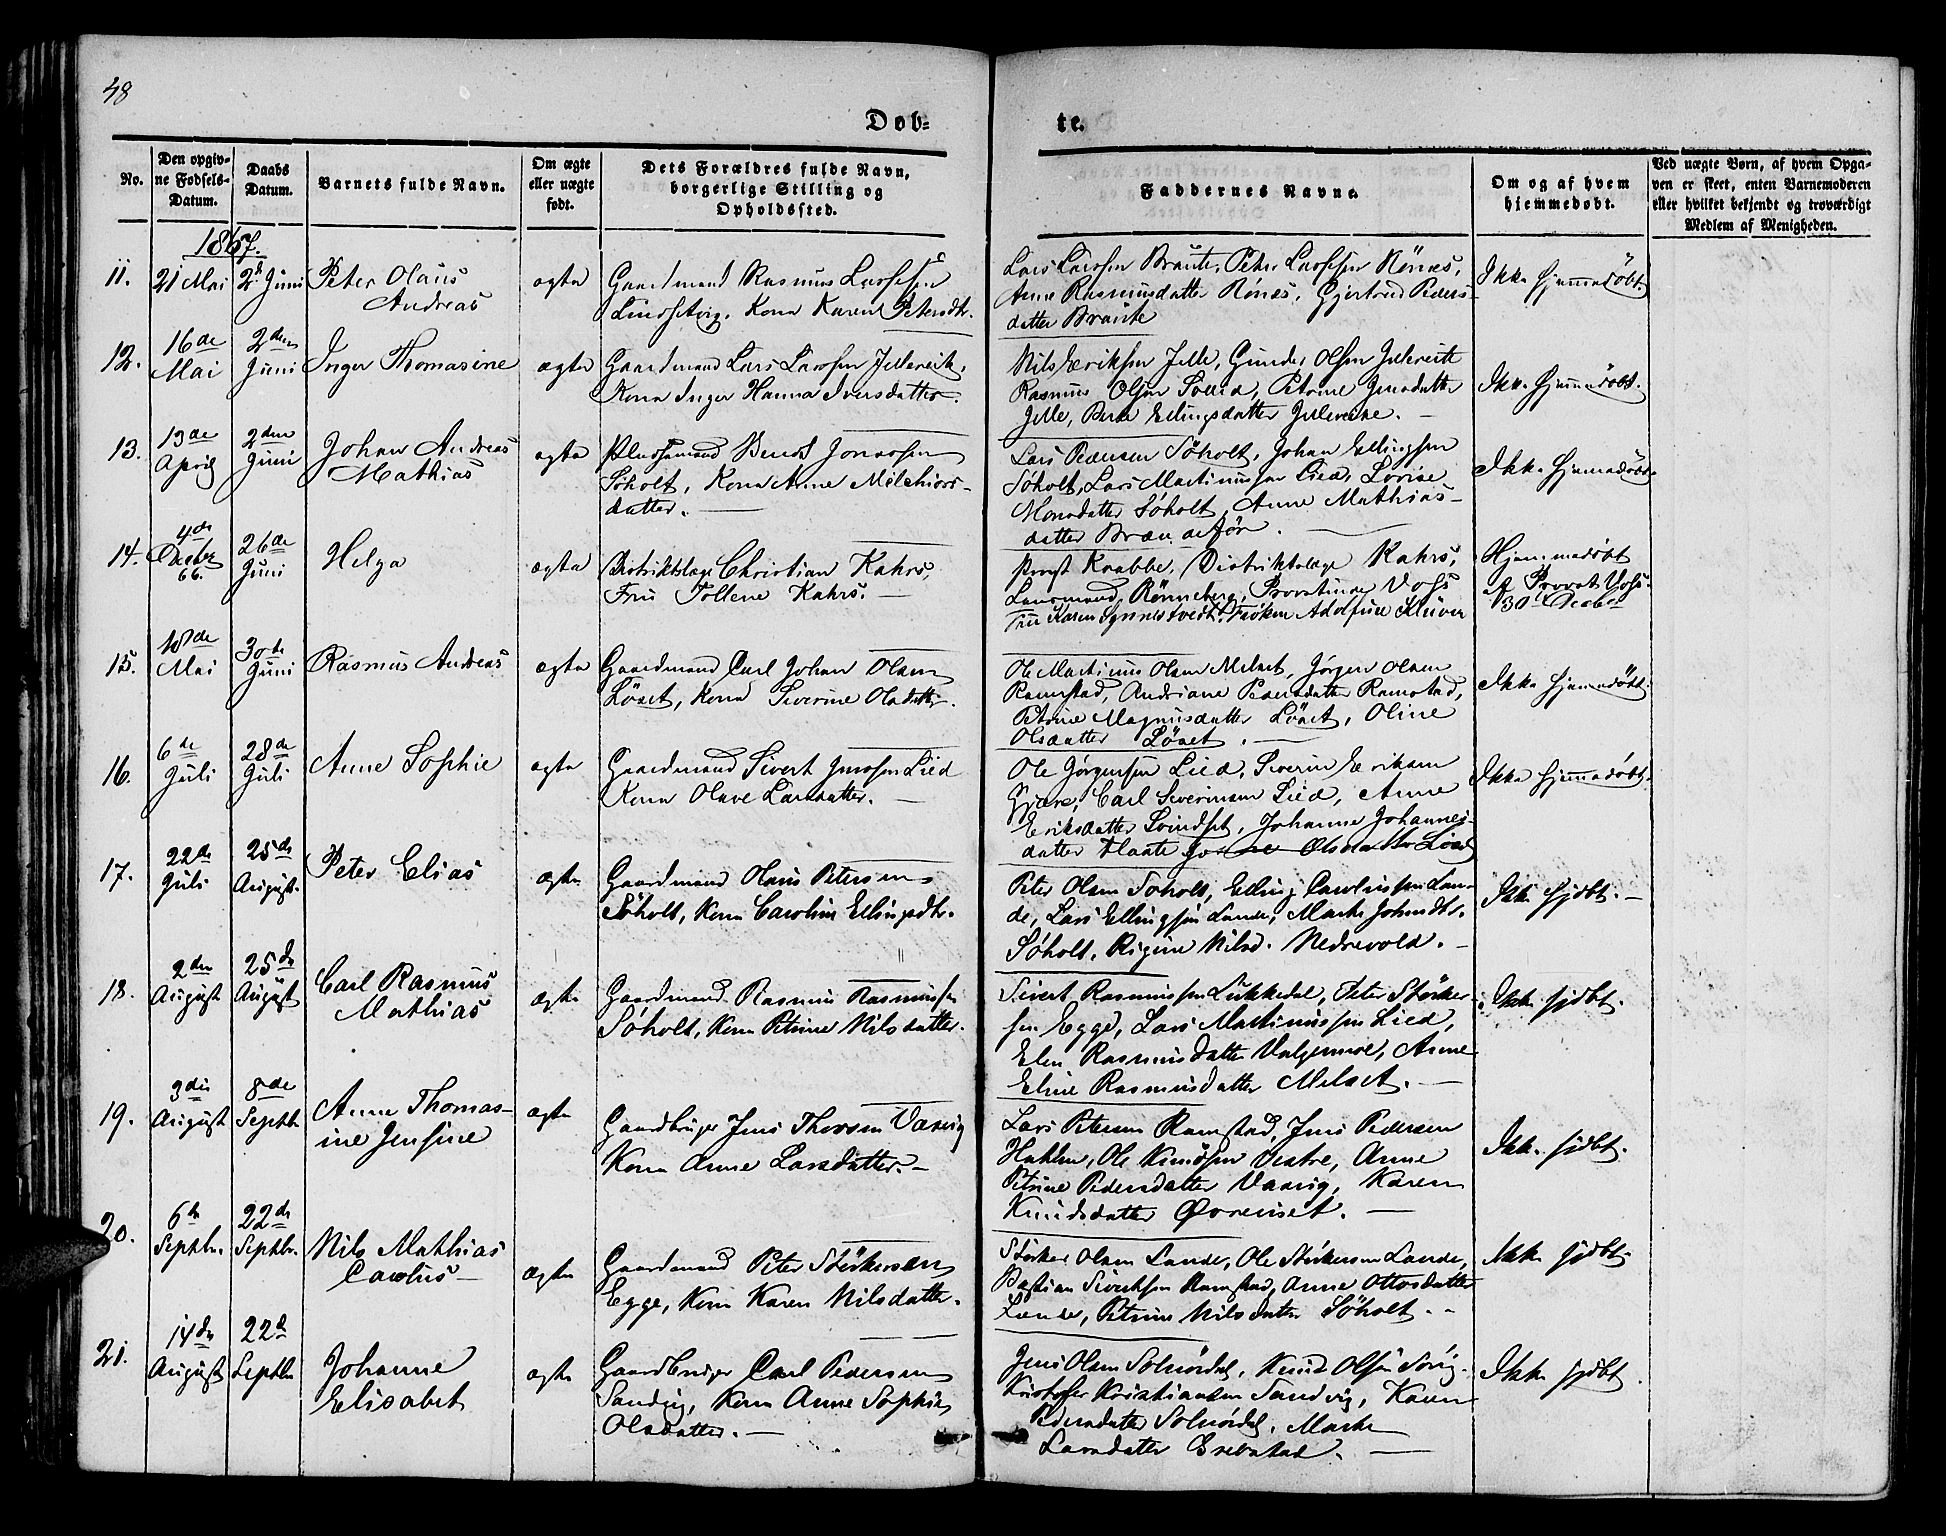 48
Døb-
te.
No.
Den opgiv-
ne Fødsels-
Datum.
Daabs
Datum.
Barnets fulde Navn.
Om ægte
eller uægte
født.
Dets Forældres fulde Navn,
borgerlige Stilling og
Opholdssted.
Faddernes Navne.
Om og af hvem
hjemmedøbt.
Ved uægte Børn, af hvem Opga-
ven er skeet, enten Barnemoderen
eller hvilket bekjendt og troværdigt
Medlem af Menigheden.
1867.
11.
21 Mai
2d Juni
Peter Olaus
Andreas
ægte
Gaardmand Rasmus Larssen
Lindsetvig, Kona Karen Petersdtr.
Lars Larssen Braute, Peter Larssen Rönæs,
Anne Rasmusdatter Rönæs, Gjertrud Peders-
datter Braute
Ikke hjemmedöbt.
12.
16de
Mai
2den
Juni
Inger Thomasine
ægte
Gaardmand Lars Larssen Jelleveit,
Kona Inger Hanna Iversdatter.
Nils Eriksen Jelle, Gunder Olsen
Rasmus Olsen Petrine
Jelle, Ellingsdatter
Ikke hjemmedöbt.
13.
13de
April
2den
Juni
Johan Andreas
Mathias
ægte
Pladsemand Bendt Jonassen
Søholt, Kona Anne Melchiors-
datter.
Lars Pedersen Søholt, Johan Ellingsen
Søholt, Lars Martinussen Lied, Lovise
Monsdatter Søholt, Anne Mathias-
datter
Ikke hjemmedöbt.
14.
4de
Decbr
66.
26de
Juni
Helga
ægte
Distriktslæge Christian Kahrs,
Fru Tollene Kahrs.
Krabbe, Distriktslæge Kahrs,
Lensmand Rönneberg, Provstinde Vogs
Fru Karen Synnestvedt, Fröken Adolfine Klüver
Hjemmedöbt
af Provst Vogs
30 Decbr
15.
18de
Mai
30te
Juni
Rasmus Andreas
ægte
Gaardmand Carl Johan Olsen
Löset, Kona Severine Olsdatter.
Ole Martinus Olsen Melset, Jörgen Olsen
Ramstad, Andriane Pedersdatter Ramstad,
Petrine Magnusdatter Löset, Oline
Olsdatter Löset.
Ikke hjemmedöbt.
16.
6de
Juli
28de
Juli
Anne Sophie
ægte
Gaardmand Sivert Jenssen Lied
Kona Olave Larsdatter.
Ole Jörgenssen Lied, Severin Eriksen
Carl Severinsen Lied, Anne
Eriksdatter Johanne Johannes-
datter Olsdatter
Ikke hjemmedöbt.
17.
22de
Juli
25de
August.
Peter Elias
ægte
Gaardmand Olaus Petersen
Søholt, Kona Caroline Ellingsdtr.
Peter Olsen Søholt, Elling Carolussen Lan-
de, Lars Ellingsen Lande, Marte Johnsdtr.
Søholt, Rigine Nilsd. Nedrevold.
Ikke hjdbt.
18.
2den
August
25de
August
Carl Rasmus
Mathias
ægte
Gaardmand Rasmus Rasmussen
Søholt, Kona Petrine Nilsdatter.
Sivert Rasmussen Lükkedal, Peter Störker-
sen Egge, Lars Martinussen Lied,
Elen Rasmusdatter Valgermoe, Anne
Eline Rasmusdatter Melset.
Ikke hjdbt.
19.
3die
August
8de
Septbr.
Anne Thomas-
ine Jensine
ægte
Gaardbruger Jens Thorsen Vaavig
Kona Anne Larsdatter.
Lars Petersen Ramstad, Jens Pedersen
Hatlen, Ole Knudsen Vestre, Anne
Petrine Pedersdatter Vaavig, Karen
Knudsdatter Øvrenset.
Ikke hjdbt.
20.
6te
Septbr.
22de
Septbr.
Nils Mathias
Carolus
ægte
Gaardmand Peter Störkersen
Egge, Kona Karen Nilsdatter.
Störker Olsen Lande, Ole Störkersen Lande,
Bastian Sivertsen Ramstad, Anne Ottosdatter
Lande, Petrine Nilsdatter Søholt.
Ikke hjdbt.
21.
14de
August
22d
Septbr
Johanne
Elisabet
ægte
Gaardbruger Carl Pedersen
Sandvig, Kona Anne Sophie
Olsdatter.
Jens Olsen Solnördal, Knud Olsen
Kristofer Kristiansen Sandvig, Karen
Pedersdatter Solnördal, Marte
Larsdatter
Ikke hjdbt.